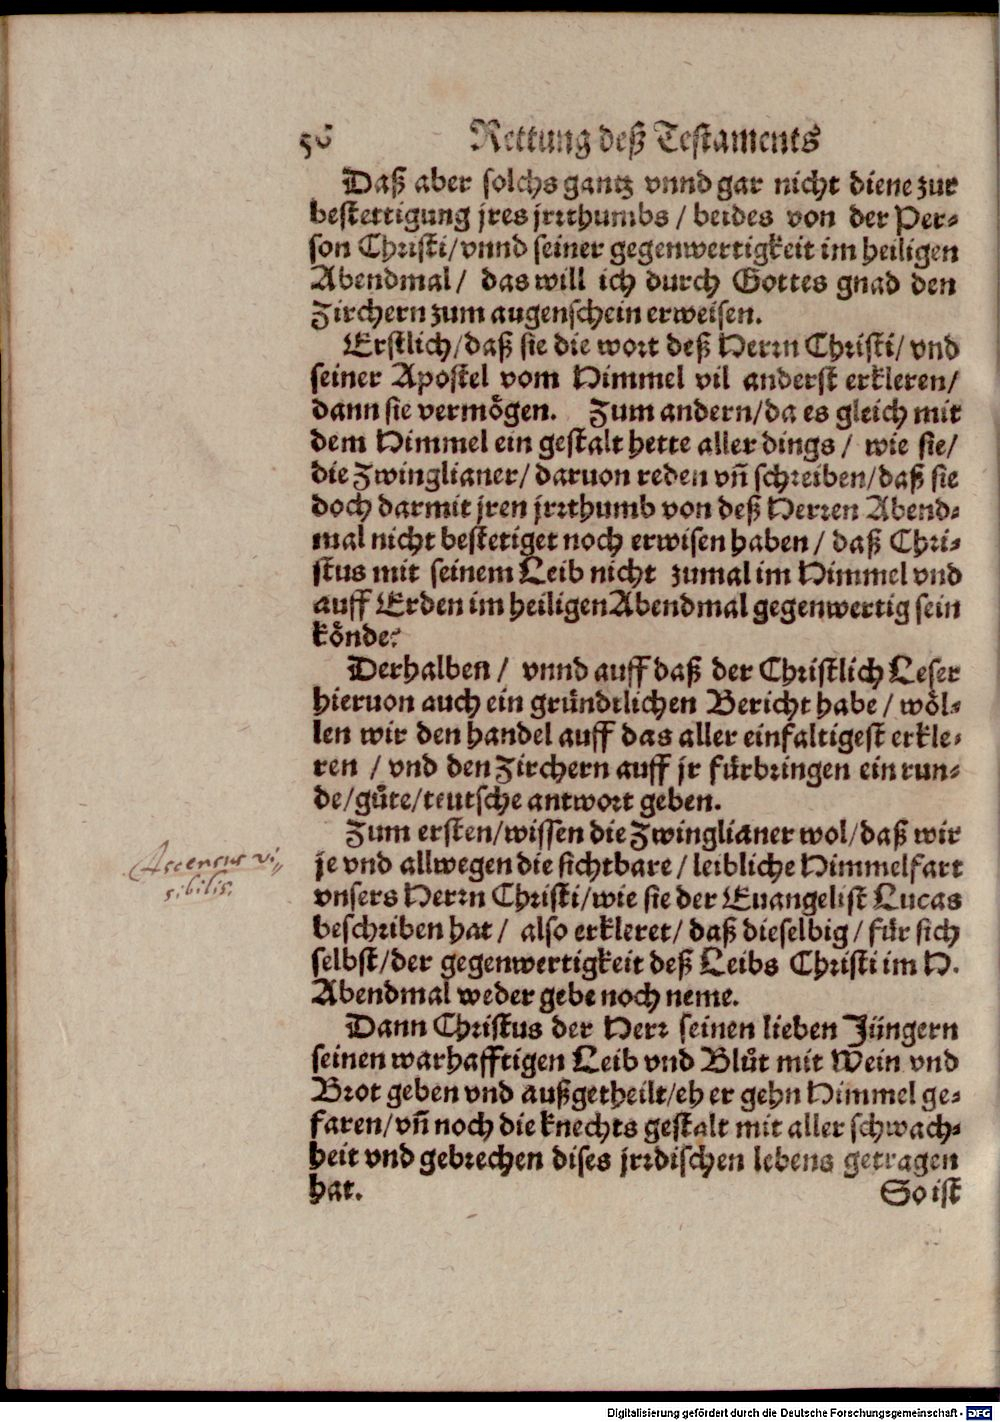 56 Rettung deß Testaments
Daß aber solchs gantz vnnd gar nicht diene zur
bestettigung jres jrrthumbs / beides von der Per-
son Christi/vnnd seiner gegenwertigkeit im heiligen
Abendmal/ das will ich durch Gottes gnad den
Zirchern zum augenschein erweisen.
Erstlich/daß sie die wort deß Herrn Christi/ vnd
seiner Apostel vom Himmel vil anderst erkleren/
dann sie vermögen. Zum andern/da es gleich mit
dem Himmel ein gestalt hette aller dings / wie sie/
die Zwinglianer/ daruon reden vn̄ schreiben/daß sie
doch darmit jren jrrthumb von deß Herren Abend-
mal nicht bestetiget noch erwisen haben / daß Chri-
stus mit seinem Leib nicht zumal im Himmel vnd
auff Erden im heiligen Abendmal gegenwertig sein
könde?
Derhalben / vnnd auff daß der Christlich Leser
hieruon auch ein gründtlichen Bericht habe / wöl-
len wir den handel auff das aller einfaltigest erkle-
ren / vnd den Zirchern auff jr fürbringen ein run-
de/gůte/teutsche antwort geben.
Zum ersten/wissen die Zwinglianer wol/daß wir
je vnd allwegen die sichtbare / leibliche Himmelfart
vnsers Herrn Christi/wie sie der Euangelist Lucas
beschriben hat / also erkleret/ daß dieselbig / für sich
selbst/der gegenwertigkeit deß Leibs Christi im H.
Abendmal weder gebe noch neme.
Dann Christus der Herr seinen lieben Jüngern
seinen warhafftigen Leib vnd Blůt mit Wein vnd
Brot geben vnd außgetheilt/eh er gehn Himmel ge-
faren/vn̄ noch die knechts gestalt mit aller schwach-
heit vnd gebrechen dises jrrdischen lebens getragen
hat. So ist
vi-
sibilis.
Digitalisierung gefördert durch die Deutsche Forschungsgemeinschaft - DFG